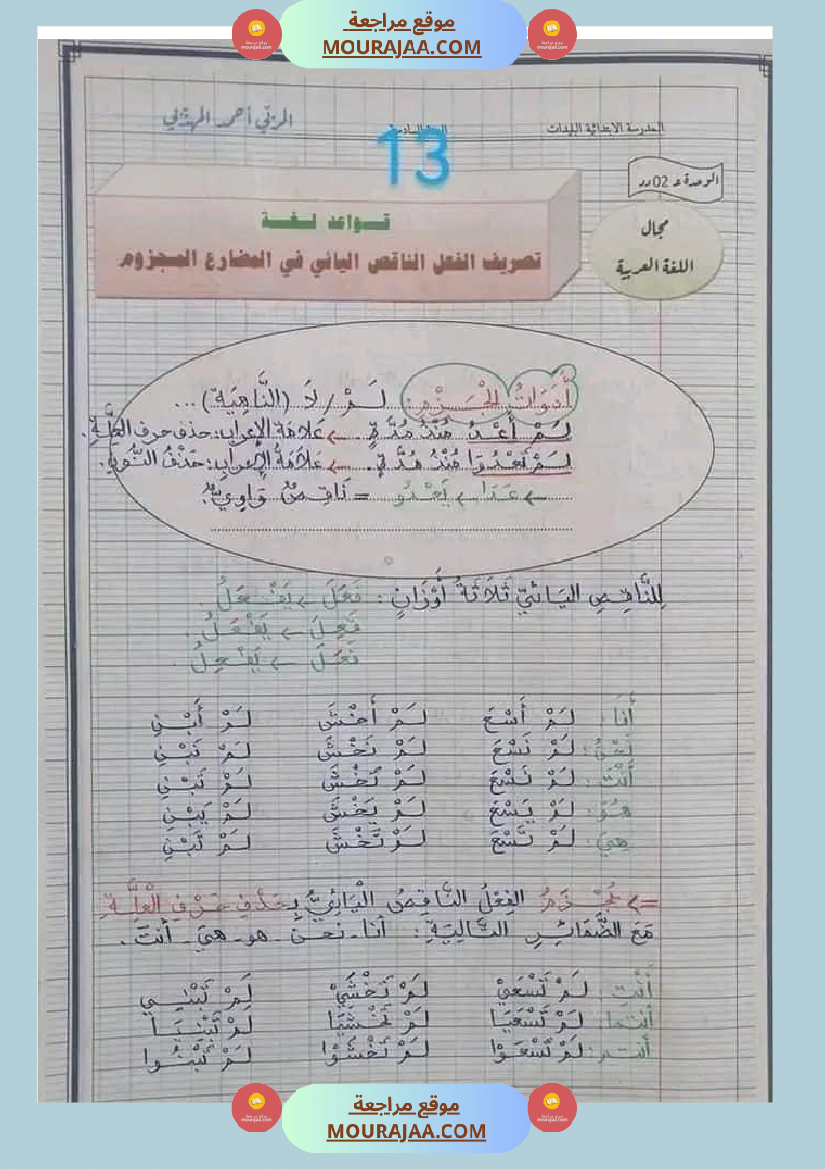 موقع مراجعة
MOURAJAA.COM
المدرسة الابتدائية
المربّي أحمد المهذبي
13
الوحدة عـ 02 ـدد
مجال
اللغة العربية
قـواعد لـغـة
تصريف الفعل الناقص اليائي في المضارع المجزوم
أَدَوَاتُ الْجَـزْمِ: لَـمْ / لَا (النَّاهِيَة) ...
لَـمْ أَعْـدُ مُنْذُ مُدَّةٍ ← عَلَامَة الإعراب: حذف حرف العِلَّـةِ.
لَـمْ تَعْـدُوَا مُنْذُ مُدَّةٍ. ← عَلَامَةُ الإعراب: حَذْفُ النُّونِ.
← عَـدَا ← يَعْدُو = نَاقِصٌ وَاوِيٌّ.
لِلنَّاقِـصِ اليَـائيّ ثَلَاثَةُ أَوْزَانٍ: فَعَلَ ← يَفْـعَـلُ
فَعِـلَ ← يَفْعَـلُ.
فَعَلَ ← يَفْعِـلُ.
أَنَا: لَـمْ أَسْـعَ لَـمْ أَخْـشَ لَـمْ أَبْـنِ
نَحْنُ: لَـمْ نَسْعَ لَـمْ نَخْـشَ لَـمْ نَبْـنِ
أَنْتَ: لَـمْ تَسْعَ لَـمْ تَخْشَ لَـمْ تَبْـنِ
هُـوَ: لَـمْ يَسْعَ لَـمْ يَخْشَ لَـمْ يَبْـنِ
هِيَ: لَـمْ تَسْعَ لَـمْ تَخْشَ لَـمْ تَبْـنِ
=> يُجْـزَمُ الفِعْلُ النَّاقِصُ الْيَائِيُّ بِحَذْفِ حَرْفِ الْعِلَّـةِ
مَعَ الضَّمَائِرِ التَّالِيَةِ: أنا - نحنُ - هو - هيَ - أنتَ.
أَنْتِ: لَـمْ تَسْعَيْ لَـمْ تَخْشَيْ لَـمْ تَبْنِـي
أنتما: لَـمْ تَسْعَيَا لَـمْ تَخْشَيَا لَـمْ تَبْنِيَـا
أنتـم: لَـمْ تَسْعَـوْا لَـمْ تَخْشَوْا لَـمْ تَبْنُـوا
موقع مراجعة
MOURAJAA.COM